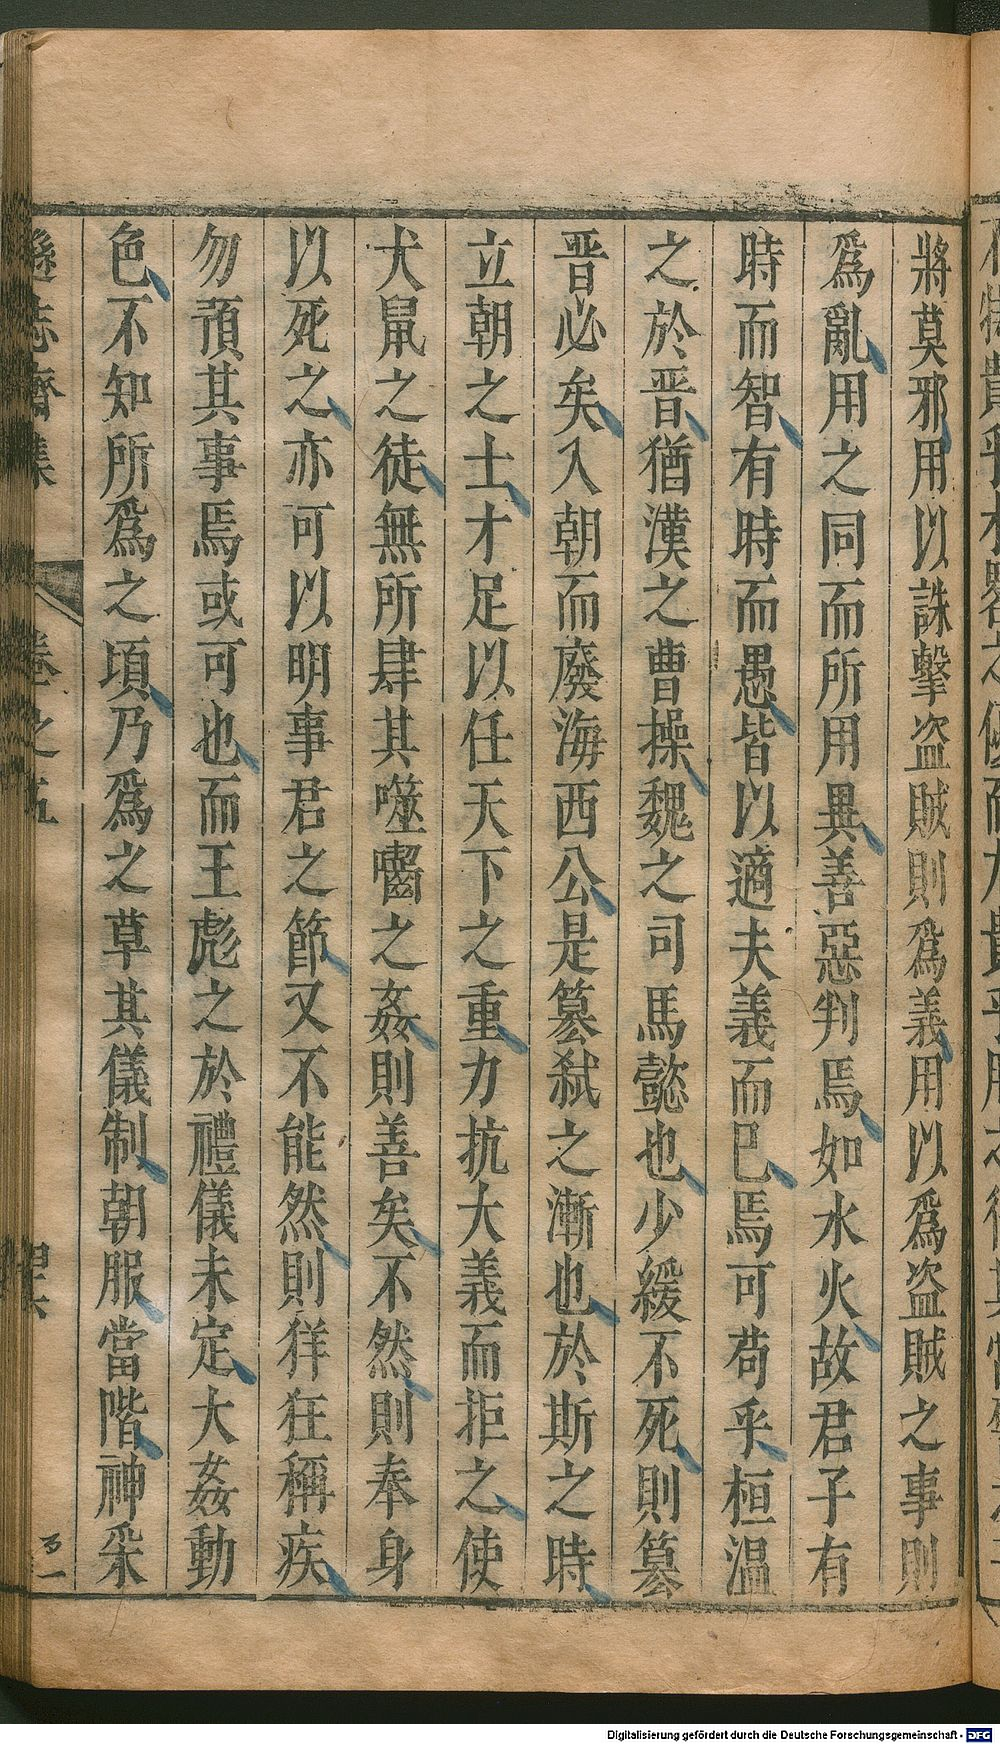 將莫邪用以誅擊盜賊則爲義用以爲盜賊之事則
爲亂用之同而所用異善惡判焉如水火故君子有
時而智有時而愚皆以適夫義而已焉可苟乎桓溫
之於晉猶漢之曹操魏之司馬懿也少緩不死則篡
晉必矣入朝而廢海西公是篡弒之漸也於斯之時
立朝之士才足以任天下之重力抗大義而拒之使
犬鼠之徒無所肆其噬嚙之姦則善矣不然則奉身
以死之亦可以明事君之節又不能然則佯狂稱疾
勿預其事焉或可也而王彪之於禮儀未定大姦動
色不知所爲之頃乃爲之草其儀制朝服當階神采
遜志齋集 卷之五
Digitalisierung gefördert durch die Deutsche Forschungsgemeinschaft - DFG